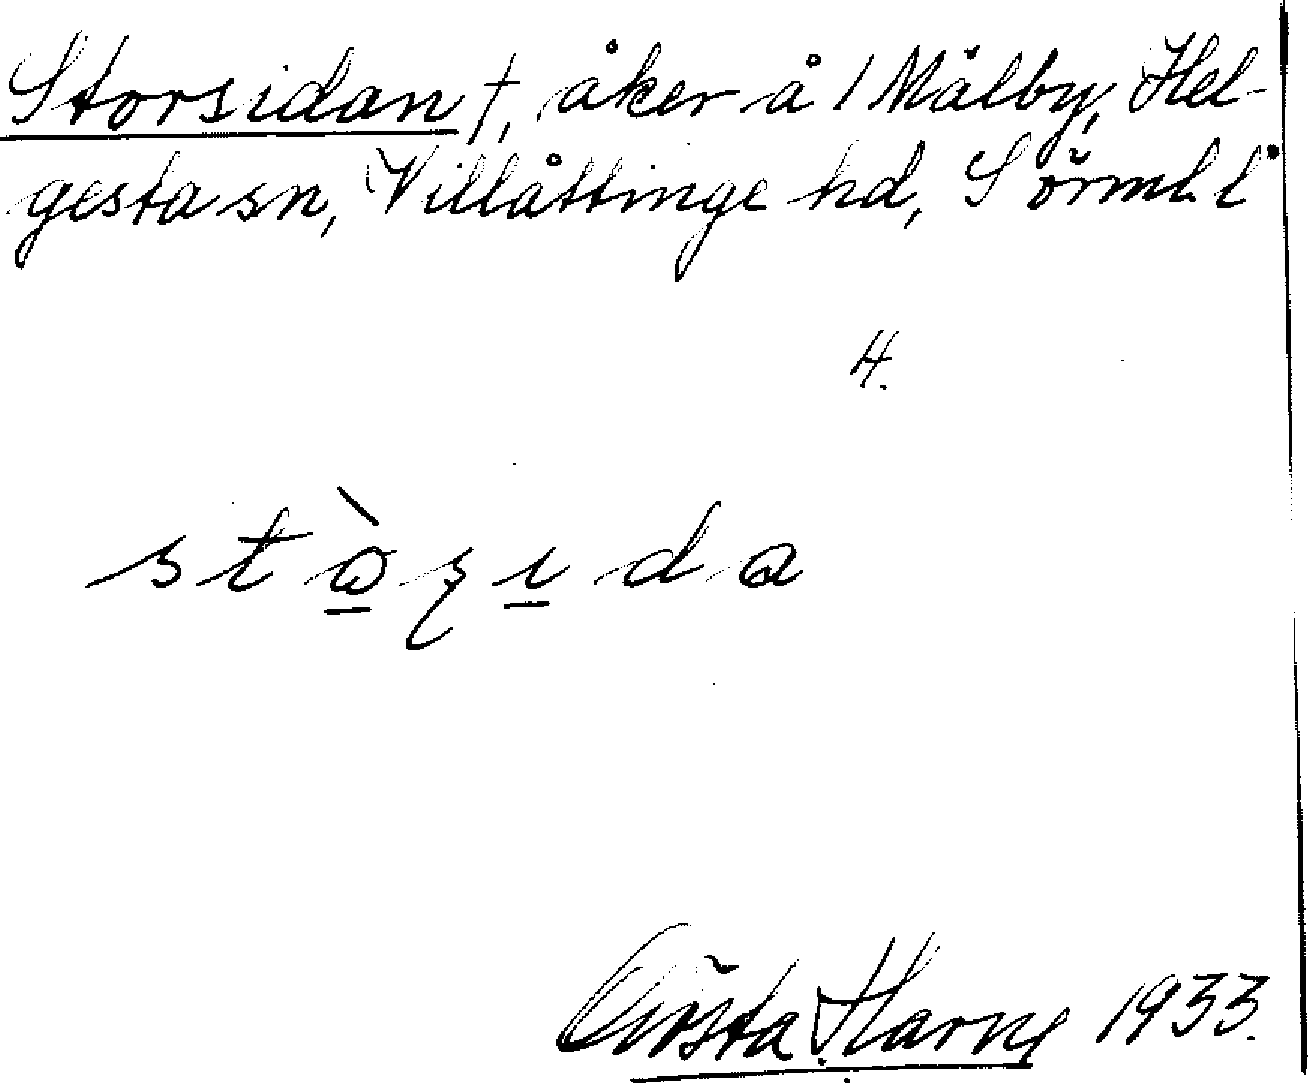 Storsidan †, åker å / Målby, Hel-
gesta sn, Villåttinge hd, Sörml. l
4.
Gösta Harne 1933.